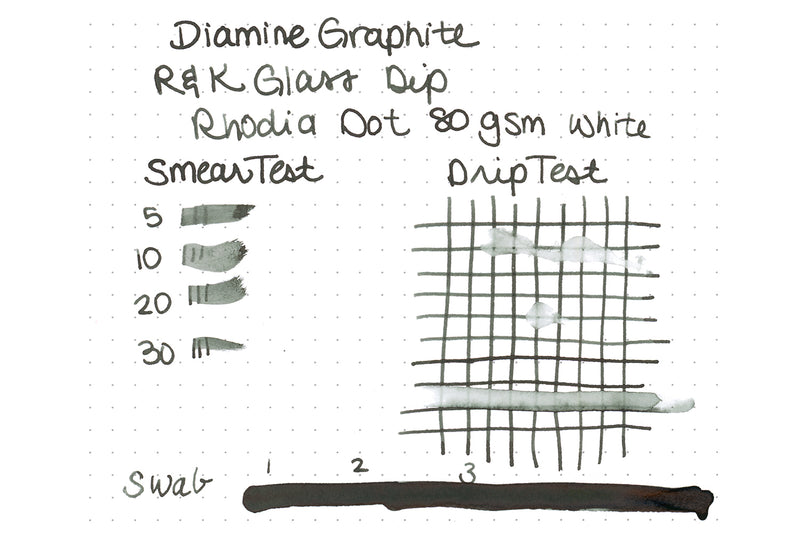 Diamine Graphite
R&K Glass Dip
Rhodia Dot 80 gsm White
Smear Test
Drip Test
5
10
20
30
Swab
1 2 3